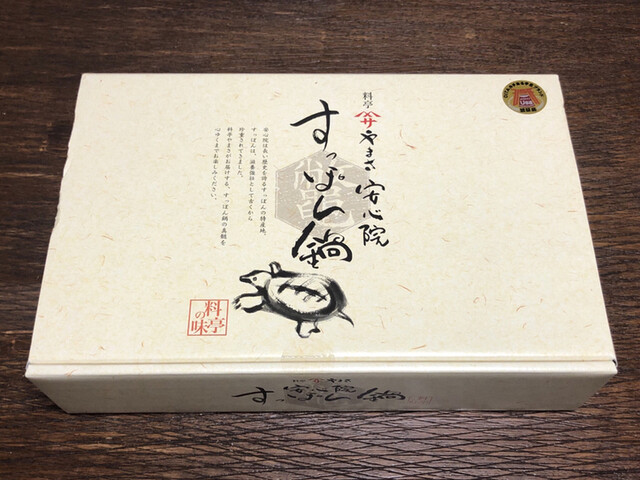 料亭 やまさ 安心院
すっぽん鍋
安心院は長い歴史を誇るすっぽんの特産地。
すっぽんは、滋養強壮として古くから
珍重されてきました。
料亭やまさがお届けする、すっぽん鍋の真髄を
心ゆくまでお楽しみください。
料亭
の味
安心院
すっぽん鍋